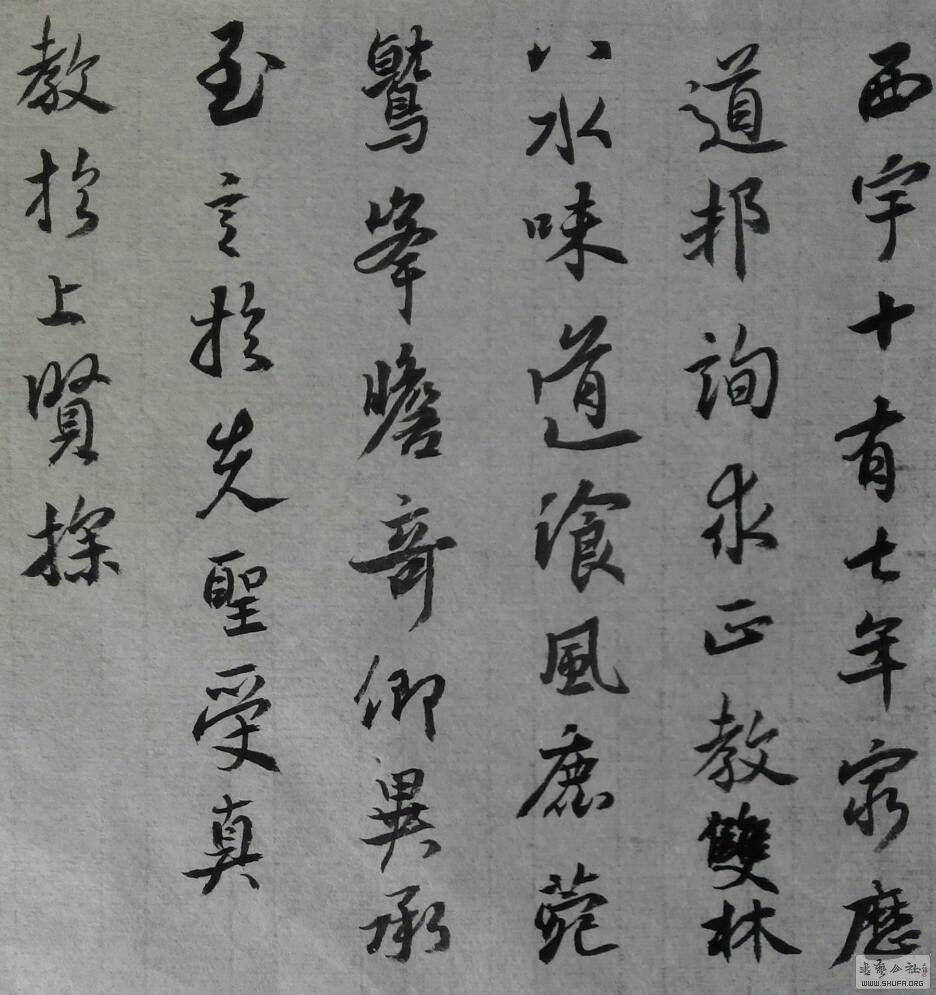 西宇十有七年窮歷
道邦詢求正教雙林
八水味道飡風鹿菀
鷲峯瞻奇仰異承
至言於先聖受真
教於上賢探
書藝公社
WWW.SHUFA.ORG